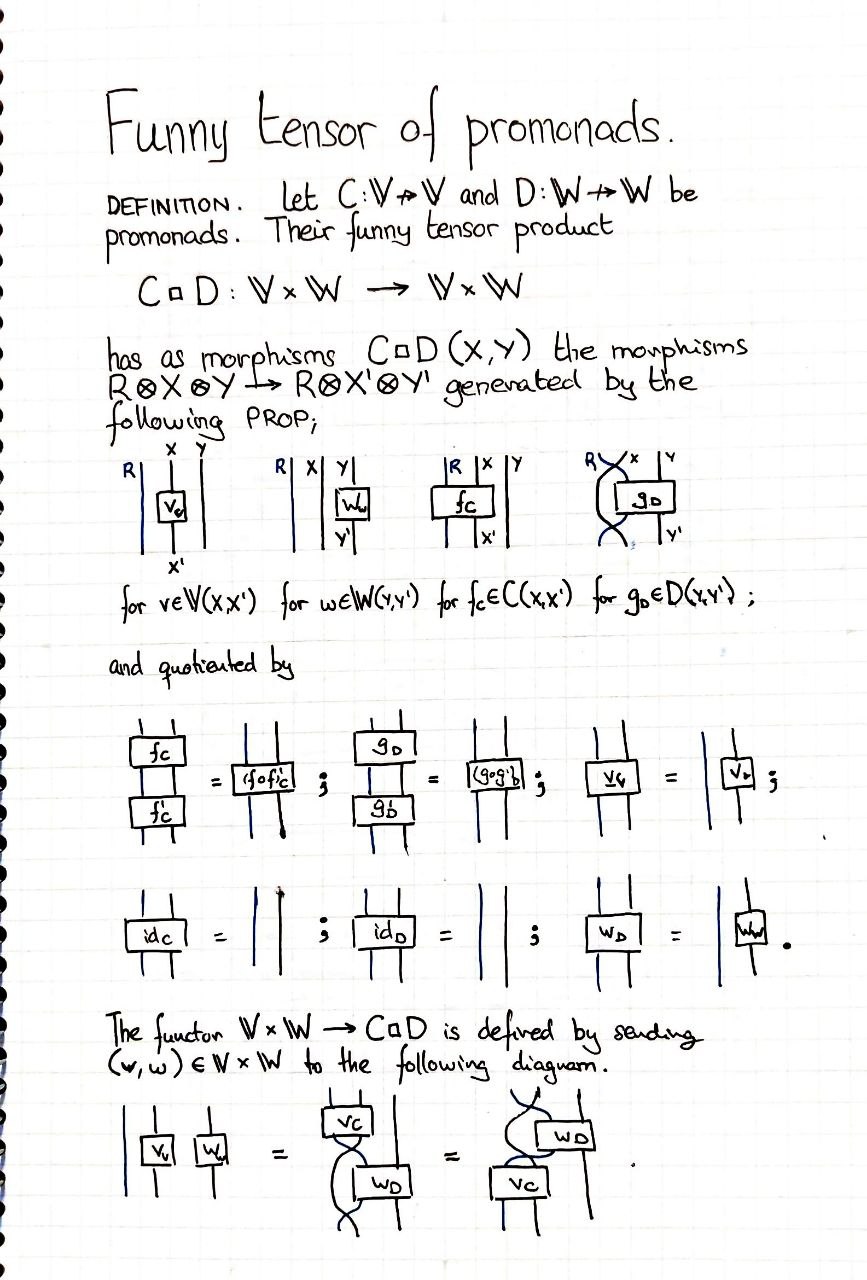 Funny tensor of promonads.
DEFINITION. Let C:𝕍⇸𝕍 and D:𝕎⇸𝕎 be
promonads. Their funny tensor product
C□D : 𝕍×𝕎 → 𝕍×𝕎
has as morphisms C□D (X,Y) the morphisms
R⊗X⊗Y → R⊗X'⊗Y' generated by the
following PROP;
X Y
R R X Y R X Y R X Y
v_𝕍 w_𝕎 f_C g_D
X' Y' X' Y'
for v∈𝕍(X,X') for w∈𝕎(Y,Y') for f_C∈C(X,X') for g_D∈D(Y,Y') ;
and quotiented by
f_C f'_C = (f∘f')_C ; g_D g'_D = (g∘g')_D ; v_C = v_𝕍 ;
id_C = ; id_D = ; w_D = w_𝕎 .
The functor 𝕍×𝕎 → C□D is defined by sending
(v,w)∈𝕍×𝕎 to the following diagram.
v_𝕍 w_𝕎 = v_C w_D = w_D v_C .